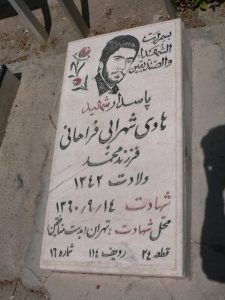 بهمراه
الشهداء
والصدیقین
پاسدار شهید
هادی شهرابی فراهانی
فرزند محمد
ولادت ۱۳۴۲
شهادت ۱۳۶۰/۹/۱۴
محل شهادت: تهران بدست منافقین
قطعه ۲۴ ردیف ۱۱۴ شماره ۱۶